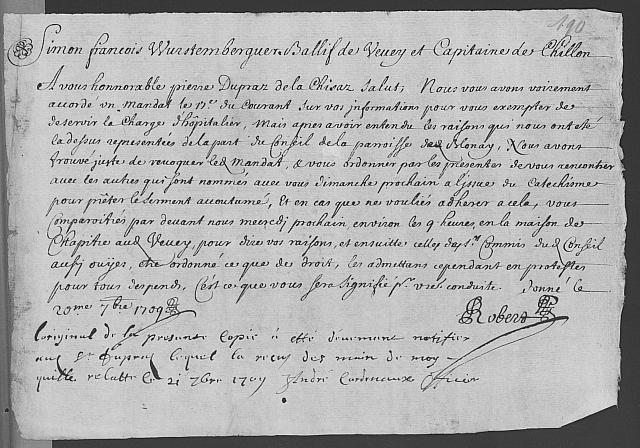 190
Simon francois Wurstemberguer Ballif de Vevey et Capitaine de Chillon
A vous honnorable pierre Dupraz de la Chisaz Salut; Nous vous avons voirement
accordé vn Mandat le 17e du Courant sur vos informations pour vous exempter de
deservir la Charge d'hôpitalier, Mais apres avoir entendu les raisons qui nous ont été
la dessus representées de la part du Conseil de la paroisse de Blonay, Nous avons
trouvé juste de revoquer led Mandat, & vous ordonner par les presentes de vous rencontrer
avec les autres qui sont nommés avec vous Dimanche prochain a l'issue du Catechisme
pour prêter le serment accoutumé, Et en cas que ne vouliés adherer a cela, vous
comparoitrés par devant nous mercredj prochain environ les 9 heures, en la maison de
Chapitre aud Vevey, pour dire vos raisons, et ensuitte celles des Srs Commis dud Conseil
aussj ouijes, être ordonné ce que de droit, les admettans cependant en protestes
pour tous despends, C'est ce que vous sera signifié pr vre conduite. Donné le
20me 7bre 1709
Robert
L'original de la presente Copie à etté devement notifier
aud Sr Dupraz lequel la reçus des main de moy
quille relatte ce 21 7bre 1709 André officier